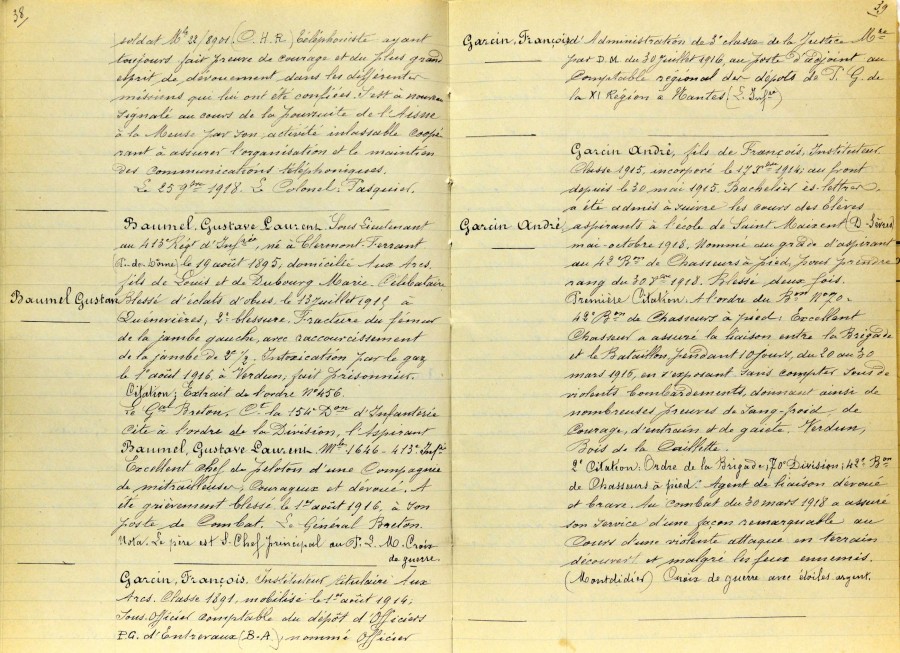 38/
soldat Mle 22/8901 (C.H.R) Téléphoniste ayant
toujours fait preuve de courage et du plus grand
esprit de dévouement dans les différentes
missions qui lui ont été confiées. S'est à nouveau
signalé au cours de la poursuite de l'Aisne
à la Meuse par son activité inlassable coopé
rant à assurer l'organisation et le maintien
des communications téléphoniques.
Le 25 9bre 1918. Le Colonel: Pasquier.
Baumel, Gustave Laurent Sous Lieutenant
au 413e Régt d'Infrie, né à Clermont-Ferrant
(P.-de-Dôme) le 19 août 1895, domicilié Aux Arcs,
fils de Louis et de Dubourg Marie. Célibataire
Baumel Gustave
Blessé d'éclats d'obus, le 13 juillet 1915 à
Quennevières; 2e blessure. Fracture du fémur
de la jambe gauche, avec raccourcissement
de la jambe de 2c 1/2. Intoxication par le gaz
le 1er août 1916, à Verdun; fait prisonnier.
Citation; Extrait de l'ordre No 456.
Le Gal Breton. Ct la 154e Don d'Infanterie
Cite à l'ordre de la Division, l'Aspirant
Baumel, Gustave Laurent Mle 1646 - 413e Infie
Excellent chef de peloton d'une Compagnie
de mitrailleuse, courageux et dévoué. A
été grièvement blessé le 1er août 1916, à son
poste de Combat. Le Général Breton.
Nota. Le père est S. Chef principal au P. L. M. Croix
de guerre.
Garcin, François. Instituteur titulaire Aux
Arcs. Classe 1891, mobilisé le 1er août 1914;
Sous. Officier comptable du dépôt d'Officiers
P.G. d'Entrevaux (B-A), nommé Officier
39
Garcin, François
d'Administration de 3e classe de la Justice Mre
par D.M. du 30 juillet 1916, au poste d'adjoint au
Comptable régional des dépôts de P. G de
la XI Région à Nantes (L. Infre)
Garcin André, fils de François, Instituteur
Classe 1915, incorporé le 17 Xbre 1914; au front
depuis le 30 mai 1915. Bachelier ès-lettres
a été admis à suivre les cours des Elèves
Garcin André
aspirants à l'école de Saint Maixent (D-Sèvres)
mai-octobre 1918. Nommé au grade d'aspirant
au 42e Bon de Chasseurs à pied, pour prendre
rang du 30 1918. Blessé deux fois.
Première Citation. A l'ordre du Bon No 70 -
42e Bon de Chasseurs à pied: Excellent
Chasseur a assuré la liaison entre la Brigade
et le Bataillon, pendant 10 jours, du 20 au 30
mars 1916, en s'exposant sans compter sous de
violents bombardements, donnant ainsi de
nombreuses preuves de sang-froid, de
courage, d'entrain et de gaieté. Verdun,
Bois de la Caillette.
2e Citation: Ordre de la Brigade; 70e Division; 42e Bon
de Chasseurs à pied: Agent de liaison dévoué
et brave. Au combat du 30 mars 1918 a assuré
son service d'une façon remarquable au
cours d'une violente attaque en terrain
découvert et malgré les feux ennemis.
(Montdidier) Croix de guerre avec étoiles argent.